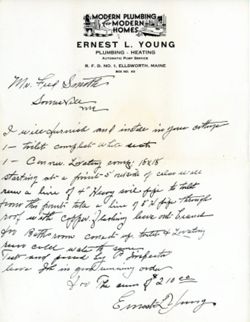 MODERN PLUMBING
FOR
MODERN
HOMES
ERNEST L. YOUNG
PLUMBING - HEATING
AUTOMATIC PUMP SERVICE
R. F. D. NO. 1, ELLSWORTH, MAINE
BOX NO. 43
Mr. Fred Smith
Somesville
Me
I will furnish and install in your cottage
1 - toilet complet white seat
1 - Connor Lavatory comp. 16x18
Starting at a point 5' outside of celar will
run a line of 4" Heavy soil pipe to toilet
from this point take a line of through
roof with copper flashing leave out
for Bath room connect up toilet & Lavatory
runn cold water to same
Test and by Inspector
leave Job in good running order
for The sum of $210.00
Ernest L Young